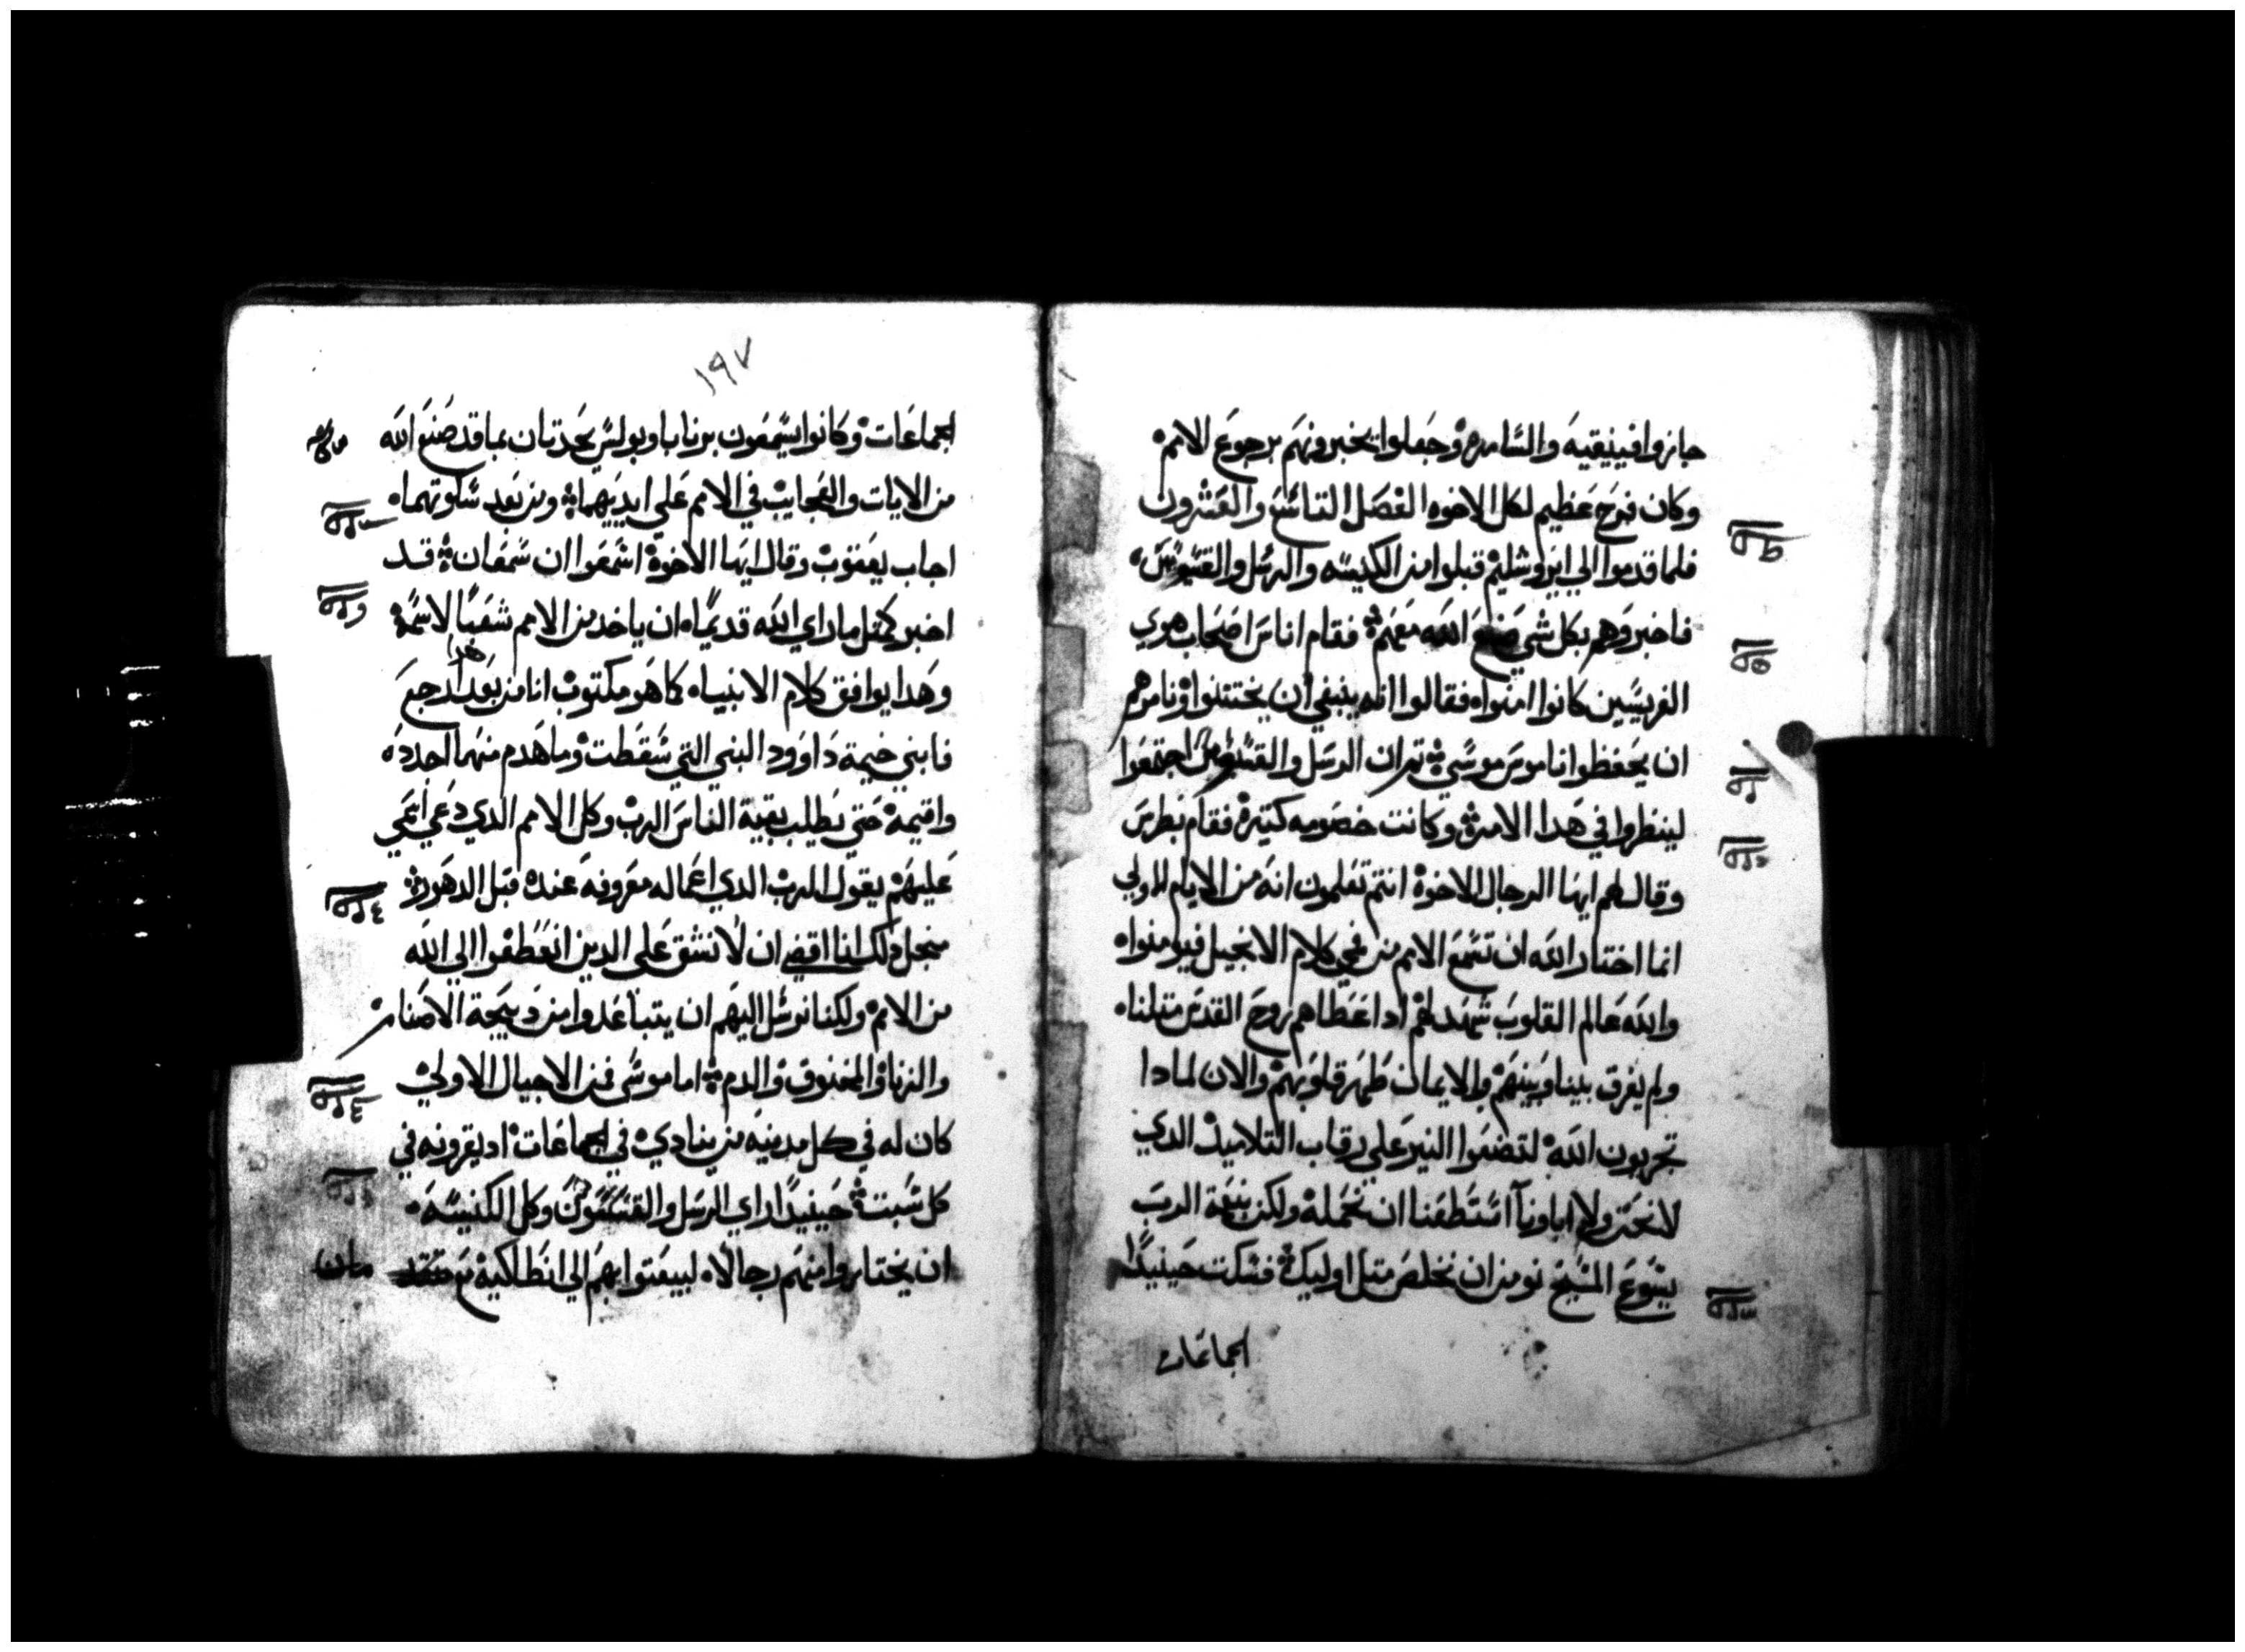 جازوا فينيقيه والسامره وجعلوا يخبرونهم برجوع الامم
وكان فرح عظيم لكل الاخوه الفصل التاسع والعشرون
فلما قدموا الي ايروشليم قبلوا من الكنيسه والرسل والقسوس
فاخبروهم بكل شي صنع الله معهم فقام اناس اصحاب هوي
الفريسين كانوا امنوا فقالوا انه ينبغي ان يختتنوا ونامرهم
ان يحفظوا ناموس موسي تم ان الرسل والقسوس اجتمعوا
لينظروا في هدا الامر وكانت خصومه كتيره فقام بطرس
وقال لهم ايها الرجال الاخوة انتم تعلمون انه من الايام الاولي
انما اختار الله ان تسمع الامم من فمي كلام الانجيل فيومنوا
والله عالم القلوب شهد لهم اد اعطاهم روح القدس متلنا
ولم يفرق بيننا وبينهم والايمان طهر قلوبهم والان لمادا
تجربون الله لتضعوا النير علي رقاب التلاميد الدي
لا نحن ولا اباونا استطعنا ان نحمله ولكن بنعمة الرب
يسوع المسيح نومن ان نخلص متل اوليك فسكت حينيدا
الجماعات
١٩٧
الجماعات وكانوا يسمعون برنابا وبولس يحدتان بما قد صنع الله
من الايات والعجايب في الامم علي ايديهما ومن بعد سكوتهما
اجاب يعقوب وقال ايها الاخوة اسمعوا ان سمعان قد
اخبر كمتل ما راي الله قديما ان ياخد من الامم شعبا لاسمه
وهدا يوافق كلام الانبياء كما هو مكتوب انا من بعد هدا ارجع
فابني خيمة داوود البني التي سقطت وما هدم منهما اجدده
واقيمه حتي يطلب بقية الناس الرب وكل الامم الدي دعي اسمي
عليهم يقول الرب الدي اعماله معروفه عنده قبل الدهور
منجل دلك انا اقضي ان لا نشق علي الدين انعطفوا الي الله
من الامم ولكنا نرسل اليهم ان يتباعدوا من دبيحة الاصنام
والزنا والمخنوق والدم اما موسي فمن الاجيال الاولي
كان له في كل مدينه من ينادي في الجماعات اد يقرونه في
كل سبت حينيدا راي الرسل والقسوس وكل الكنيسه
ان يختاروا منهم رجالا ليبعتوا بهم الي انطاكية مع